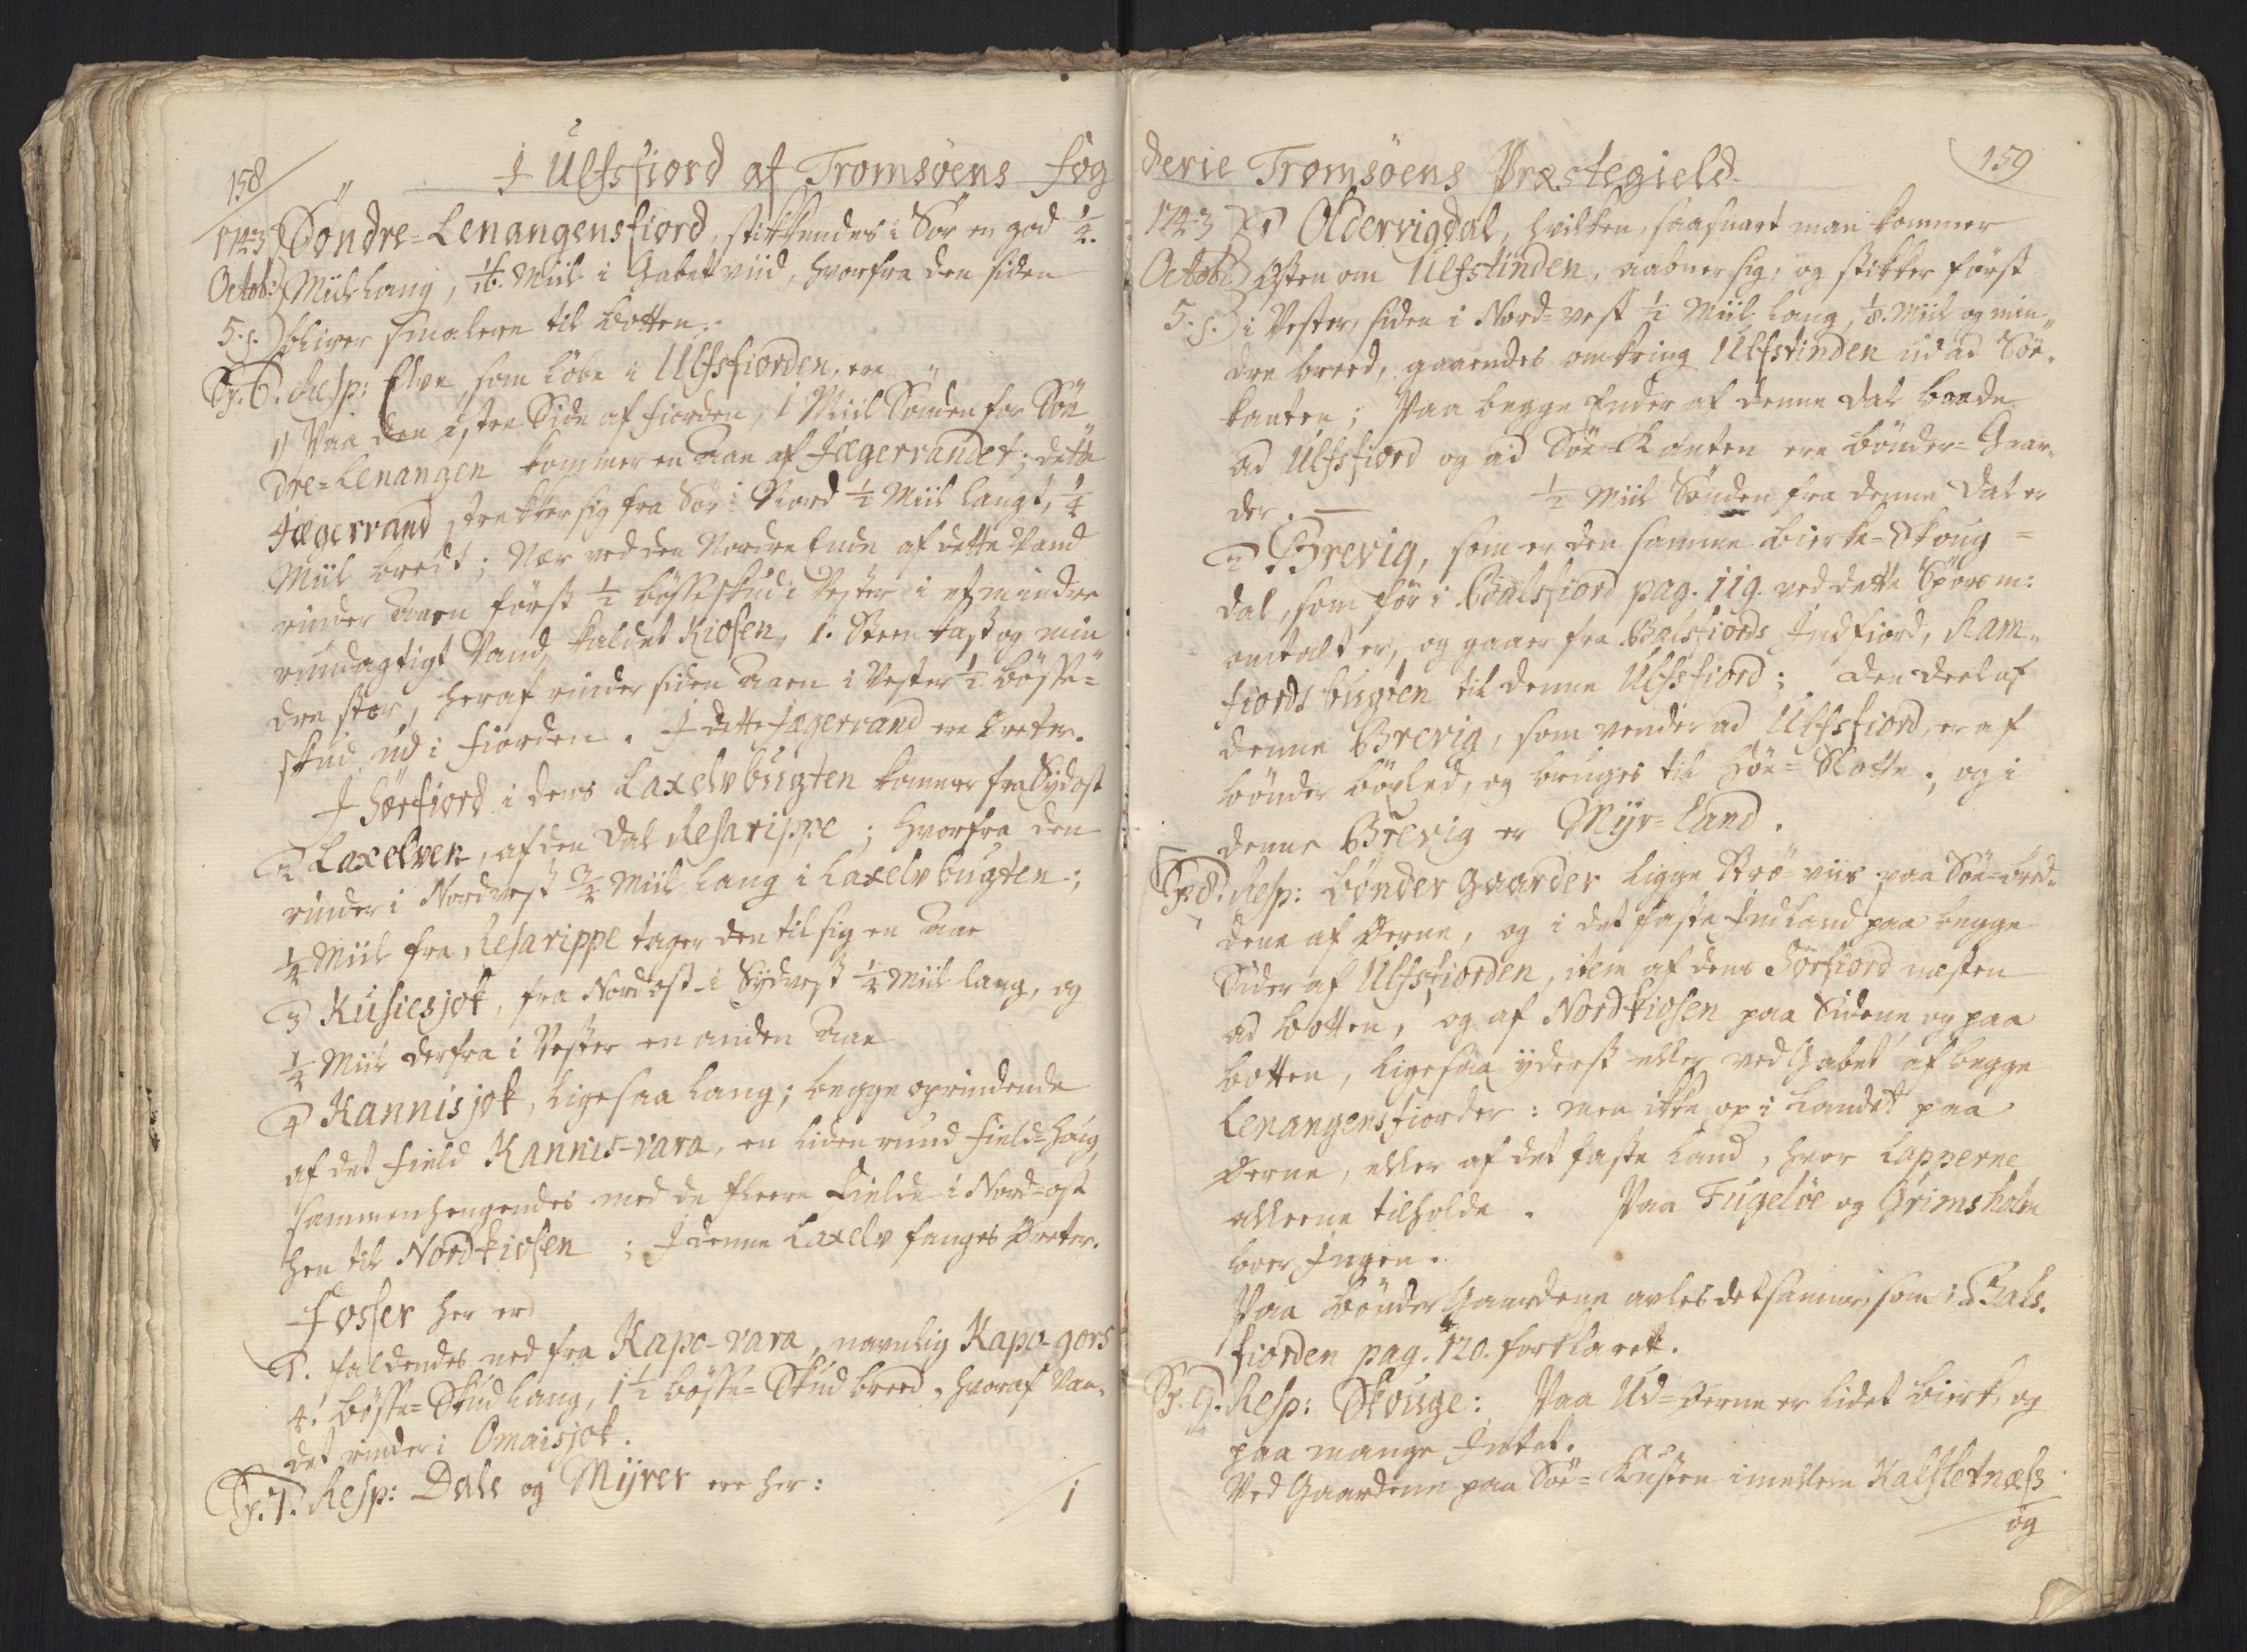 158
I Ulfsfiord af Tromsøens Fog
1743 Søndre=Lenangensfiord, stikkendes i Sør en god 1/4.
Octob: Miil lang, 1/16. Miil i Gabet viid, hvorfra den siden
5. s. bliver smalere til botten.
Sp. 6. Resp: Elve, som løbe i Ulfsfiorden, ere
1) Paa den østre Side af fiorden, 1 Miil Sønden for Søn
dre=Lenangen kommer en Aae af Jægervandet; dette
Jægervand strekker sig fra Sør i Nord 1/2 Miil langt, 1/4
Miil bredt; Nær ved den Nordre Ende af dette Vand
rinder Aaen først 1/2 bösseskud i Vester i et mindre
rundagtigt Vand, kaldet Kiosen, 1. Steen kast og min
dre stor, heraf rinder siden Aaen i Vester 1/2 bösse=
skud ud i fiorden. I dette Jægervand ere Ørreter.
I Sørfiord i dens Laxelvbugten kommer fra Sydost
2 Laxelven, af den Dal Resarippe; hvorfra den
rinder i Nordvest 3/4 Miil lang i Laxelvbugten;
1/4 Miil fra Resarippe tager den til sig en Aae
3 Kusiesjok, fra Nordost i Sydvest 1/4 Miil lang, og
1/4 Miil derfra i Vester en anden Aae
4 Kannisjok, ligesaa lang; begge oprindende
af det field Kannis-vara, en liden rund field=Houg,
sammenhengendes med de fleere fielde i Nord=ost
hen til Nordkiosen; I denne Laxelv fanges Ørreter.
Fosser her er
1. faldendes ned fra Kapo-vara, navnlig Kapo-gors
4. bösse=Skud lang, 1 1/2 bösse=Skud breed, hvoraf Van=
det rinder i Omaisjok.
Sp. 7. Resp: Dale og Myrer ere her:
1
derie Tromsøens Præstegield
159
1743 1 Oldervigdal, hvilken, saasnart man kommer
Octob: Østen om Ulfstinden, aabner sig, og stikker först
5. s. i Vester, siden i Nord=vest 1/2 Miil lang, 1/8. Miil og min=
dre breed, gaaendes omkring Ulfstinden ud ad Söe=
kanten; Paa begge Ender af denne Dal baade
ad Ulfsfiord og ad Söe=Kanten ere bönder=Gaar=
der. — 1/2 Miil Sönden fra denne Dal er
2 Brevig, som er den samme birke=Skoug=
dal, som för i Balsfiord pag. 119. ved dette Spörsm:
omtalt er, og gaaer fra Balsfiords Indfiord, Ram=
fiords bugten til denne Ulfsfiord; den deel af
denne Brevig, som vender ad Ulfsfiord, er af
bönder böxled, og bruges til Höe=Slotte; og i
denne Brevig er Myr=Land.
Sp. 8. Resp: Bönder Gaarder ligge Strö=viis paa Söe=bred=
dene af Øerne, og i det faste Indland paa begge
Sider af Ulfsfiorden, item af dens Sörfiord næsten
ad botten, og af Nordkiosen paa Sidene og paa
botten, ligesaa yderst eller ved Gabet af begge
Lenangensfiorder: men ikke op i Landet paa
Øerne, eller af det faste Land, hvor Lapperne
alleene tilholde. Paa Fugelöe og Grimsholm
boer Ingen.
Paa bönder Gaardene avles det samme, som i Bals=
fiorden pag. 120. forklaret.
Sp. 9. Resp: Skouge: Paa Ud=Øerne er lidet birk, og
paa mange Intet.
Ved Gaardene paa Söe=Kusten imellem Kalslotnæss
og